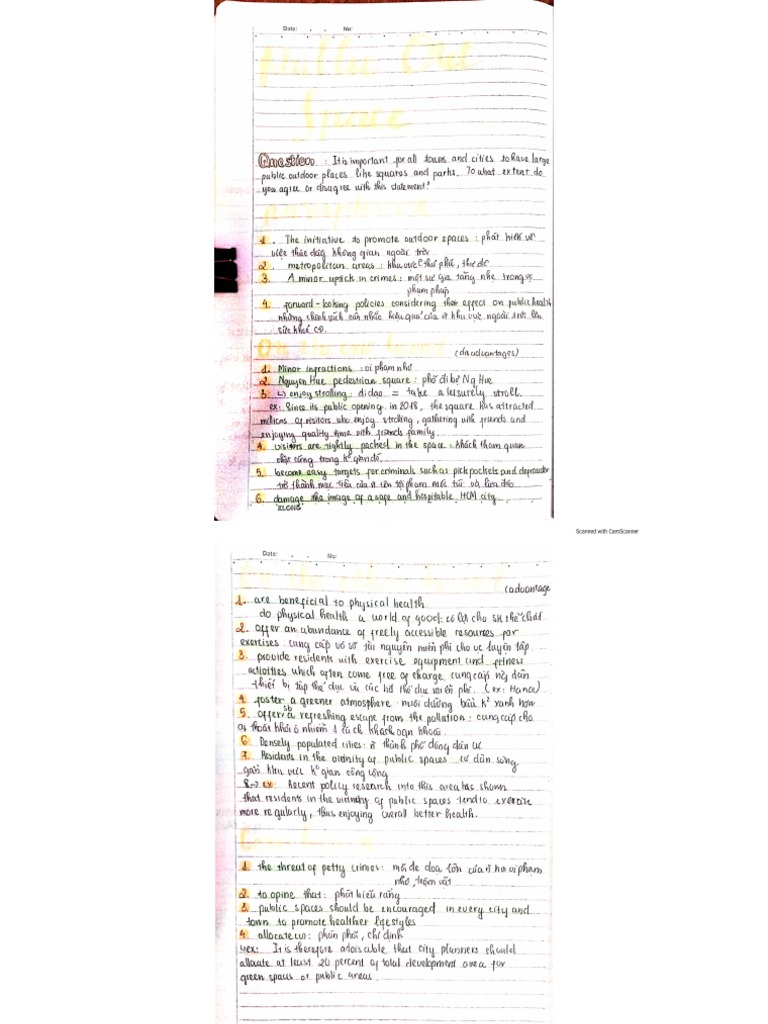 Date: No:
Public Out
Space
Question : It is important for all towns and cities to have large
public outdoor places like squares and parks. To what extent do
you agree or disagree with this statement?
1. The initiative to promote outdoor spaces : phát biểu về
việc thúc đẩy không gian ngoài trời
2. metropolitan areas : khu vực thủ phủ, thủ đô
3. A minor uptick in crimes : một sự gia tăng nhẹ trong
phạm pháp
4. forward-looking policies considering their effect on public health
những chính sách cân nhắc hiệu quả của khu vực ngoài trời lên
sức khoẻ
On the one hand
(disadvantages)
1. Minor infractions : vi phạm nhỏ
2. Nguyen Hue pedestrian square : phố đi bộ Ng Huệ
3. ↳ enjoy strolling : đi dạo = take a leisurely stroll.
ex: Since its public opening in 2018, the square has attracted
millions of visitors who enjoy strolling, gathering with friends and
enjoying quality time with friends family.
4. visitors are tightly packed in the space : khách tham quan
chật cứng trong
5. become easy targets for criminals such as pickpockets and
trở thành mục tiêu của tội phạm móc túi và lừa đảo
6. damage the image of a safe and hospitable HCM city
Scanned with CamScanner
Date: No:
(advantage
1. are beneficial to physical health
do physical health a world of good: có lợi cho SK thể chất
2. offer an abundance of freely accessible resources for
exercises cung cấp vô số tài nguyên miễn phí cho vc luyện tập
3. provide residents with exercise equipment and fitness
activities which often come free of charge. cung cấp ng dân
thiết bị tập thể dục và các hđ thể dục miễn phí. (ex: Hanoi)
4. foster a greener atmosphere : nuôi dưỡng bầu k² xanh hơn
5. offer sb a refreshing escape from the pollution : cung cấp cho
ai thoát khỏi ô nhiễm 1 cách
6. Densely populated cities : thành phố đông dân cư
7. Residents in the vicinity of public spaces cư dân sống
gần khu vực gian công cộng
8. → ex: Recent policy research into this area has shown
that residents in the vicinity of public spaces tend to exercise
more regularly, thus enjoying overall better health.
1. the threat of petty crimes : mối đe doạ lớn của vi phạm
nhỏ, trộm vặt
2. to opine that : phát biểu rằng
3. public spaces should be encouraged in every city and
town to promote healthier lifestyles
4. allocate : phân phối, chỉ định
ex: It is therefore advisable that city planners should
allocate at least 20 percent of total development area for
green spaces or public areas.